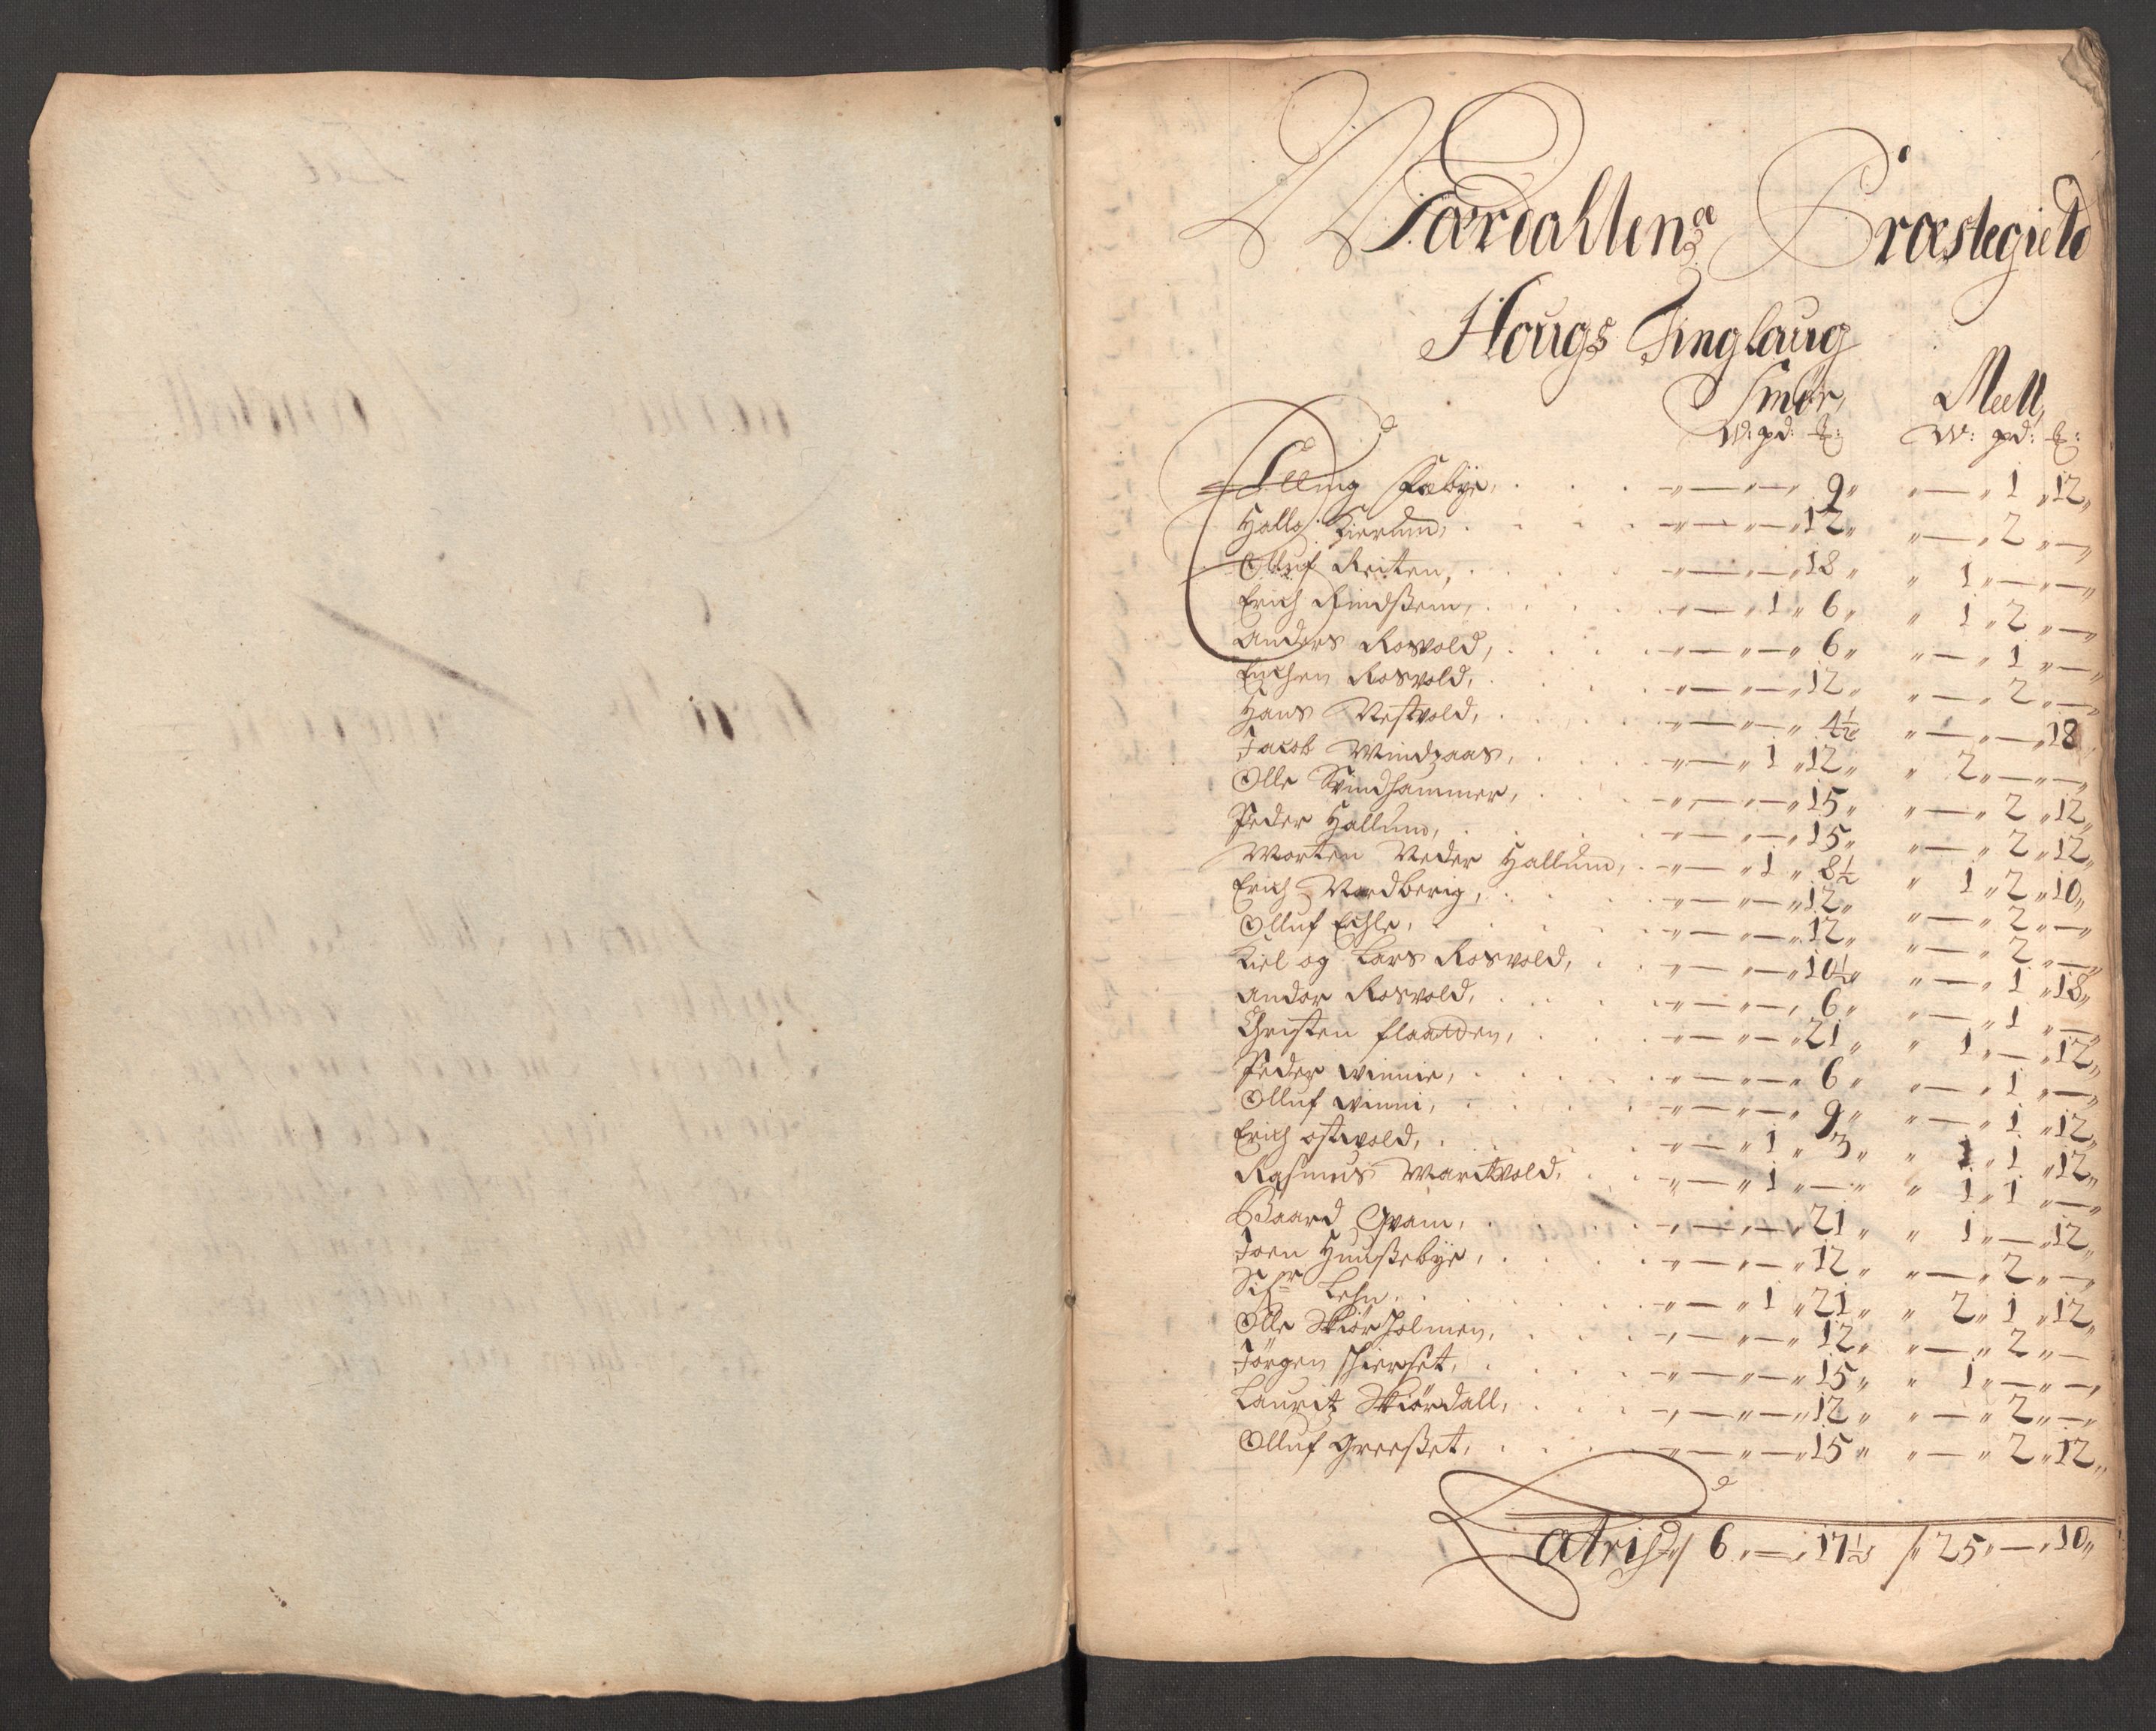 Wærdahlens Præstegield
Hougs Tinglaug
Smör, Meell,
W: pd: ℔: W: pd: ℔:
Elling Faebye, . . . „ — „ — „ 9 „ „ — „ 1 „ 12 „
Halle Zierum, . . . „ — „ — „ 12 „ „ — „ 2 „ — „
Olluf Reiten, . . . „ — „ — „ 18 „ „ 1 „ — „ — „
Erich Rindssem, . . . „ — „ 1 „ 6 „ „ 1 „ 2 „ — „
Anders Rosvold, . . . „ — „ — „ 6 „ „ — „ 1 „ — „
Rosvold, . . . „ — „ — „ 12 „ „ — „ 2 „ — „
Hans Nestvold, . . . „ — „ — „ 4½ „ — „ — „ 18
Jacob Mindzaas, . . . „ — „ 1 „ 12 „ „ 2 „ — „ — „
Olle Svindhammer, . . . „ — „ — „ 15 „ „ — „ 2 „ 12 „
Peder Hallum, . . . „ — „ — „ 15 „ „ — „ 2 „ 12 „
Morten Neder Hallum, . „ — „ 1 „ 8½ „ 1 „ 2 „ 10 „
Erich Nordberig, . . . „ — „ — „ 12 „ „ — „ 2 „ — „
Olluf Echle, . . . „ — „ — „ 12 „ „ — „ 2 „ — „
Kiel og Lars Rosvold, . . „ — „ — „ 10½ „ „ — „ 1 „ 18 „
Andor Rosvold, . . . „ — „ — „ 6 „ „ — „ 1 „ — „
Christen Flaadden, . . . „ — „ — „ 21 „ „ 1 „ — „ 12 „
Peder Winnie, . . . „ — „ — „ 6 „ „ — „ 1 „ — „
Olluf Winni, . . . „ — „ — „ 9 „ „ — „ 1 „ 12 „
Erich Ostvold, . . . „ — „ 1 „ 3 „ „ 1 „ 1 „ 12 „
Rasmus Maritvold, . . „ — „ 1 „ — „ „ 1 „ 1 „ — „
Baard Qvam, . . . „ — „ — „ 21 „ „ 1 „ — „ 12 „
Joen Huussebye, . . . „ — „ — „ 12 „ „ — „ 2 „ — „
Lehn, . . . „ — „ 1 „ 21 „ „ 2 „ 1 „ 12 „
Olle Skiörholmen, . . . „ — „ — „ 12 „ „ — „ 2 „ —
Jörgen Skierset, . . . „ — „ — „ 15 „ „ 1 „ — „ — „
Lauritz Skiördall, . . . „ — „ — „ 12 „ „ — „ 2 „ — „
Olluf Greesset, . . . „ — „ — „ 15 „ „ — „ 2 „ 12 „
Latris / 6 „ — „ 17½ / „ 25 „ — „ 10 „